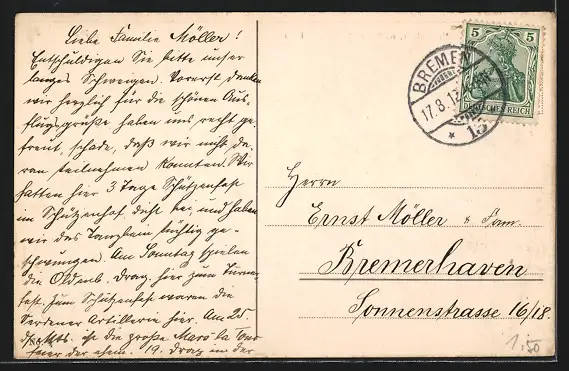 Liebe Familie Möller!
Entschuldigen Sie bitte unser
langes Schweigen. Vorerst, danken
wir herzlich für die schönen Aus,
flugsgrüße haben uns recht ge,
freut, schade, daß wir nicht da,
ran teilnehmen konnten. Wir
hatten hier 3 Tage Schützenfest
im Schützenhof dicht bei, und haben
wir das Tanzbein tüchtig ge-
schwungen. Am Sonntag spielen
die Oldenb. Drag. hier zum Turn-
fest. Zum Schützenfest waren die
Verdener Artillerie hier. Am 25.
d. Mts. ist die große
feier der ehem. 19. Drag. in der
5 5
DEUTSCHES REICH
BREMEN
17.8.13
* 15
Herrn
Ernst Möller & Fam.
Bremerhaven
Sonnenstrasse 16/18.
1.50